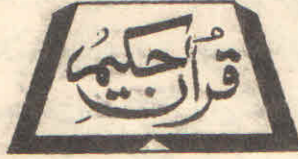 قرآن حکیم